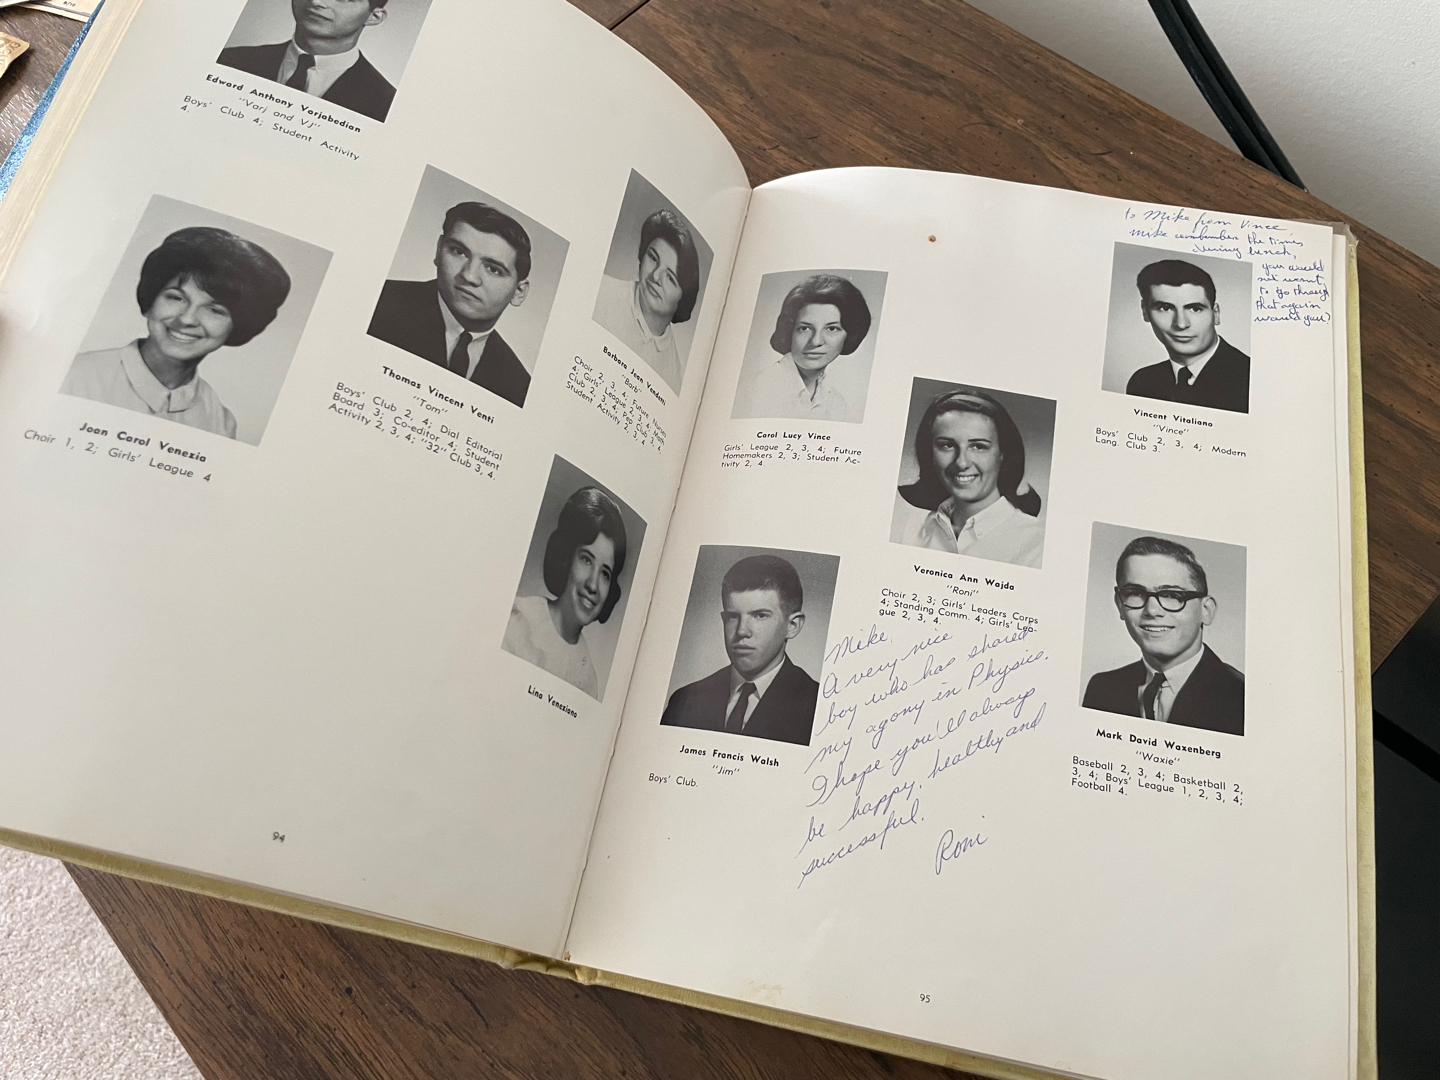 Edward Anthony Varjabedian
"Varj and VJ"
Boys' Club 4; Student Activity
4.
Joan Carol Venezia
Choir 1, 2; Girls' League 4
Thomas Vincent Venti
"Tom"
Boys' Club 2, 4; Dial Editorial
Board 3; Co-editor 4; Student
Activity 2, 3, 4; "32" Club 3, 4.
Barbara Jean Vendetti
"Barb"
Choir 2, 3, 4; Future Nurses
4; Girls' League 2, 3, 4; Math
Club 2, 3, 4; Pep Club 3, 4;
Student Activity 2, 3, 4.
Lina Veneziano
94
to Mike from Vince,
Mike remember the times
during lunch,
you would
not want
to go through
that again
would you?
Carol Lucy Vince
Girls' League 2, 3, 4; Future
Homemakers 2, 3; Student Ac-
tivity 2, 4.
Vincent Vitaliano
"Vince"
Boys' Club 2, 3, 4; Modern
Lang. Club 3.
Veronica Ann Wajda
"Roni"
Choir 2, 3; Girls' Leaders Corps
4; Standing Comm. 4; Girls' Lea-
gue 2, 3, 4.
Mike,
A very nice
boy who has shared
my agony in Physics.
I hope you'll always
be happy, healthy and
successful.
Roni
James Francis Walsh
"Jim"
Boys' Club.
Mark David Waxenberg
"Waxie"
Baseball 2, 3, 4; Basketball 2,
3, 4; Boys' League 1, 2, 3, 4;
Football 4.
95